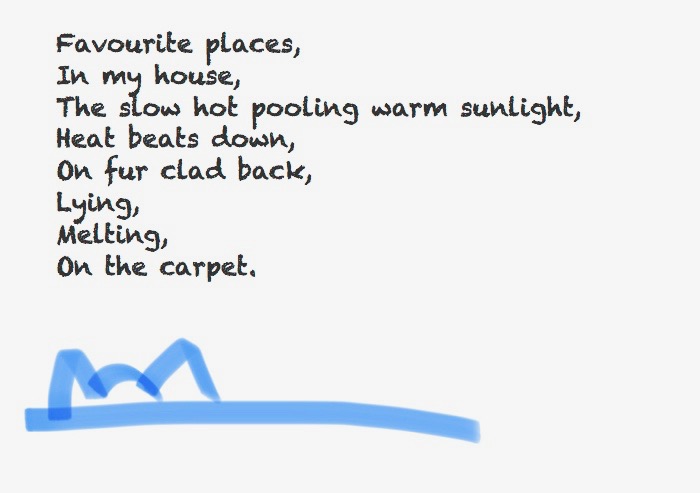 Favourite places,
In my house,
The slow hot pooling warm sunlight,
Heat beats down,
On fur clad back,
Lying,
Melting,
On the carpet.